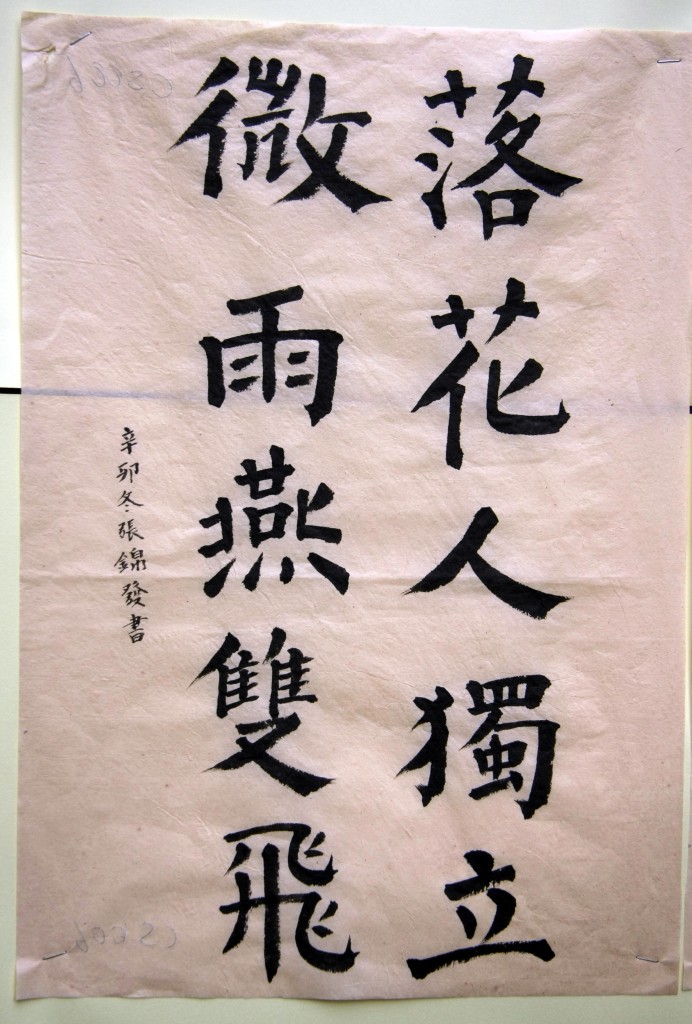 落花人獨立
微雨燕雙飛
辛卯冬張錦發書